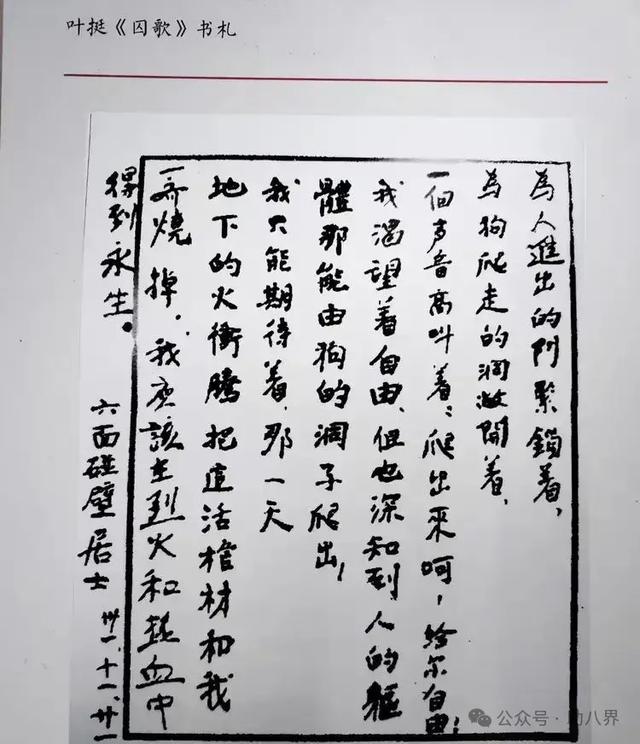 叶挺《囚歌》书札
為人進出的門緊鎖着、
為狗爬走的洞敞開着、
一個声音高叫着：爬出來呵，给尔自由！
我渴望着自由、但也深知到、人的軀
體那能由狗的洞子爬出！
我只能期待着、那一天
地下的火衝騰把這活棺材和我
一齊燒掉，我應該在烈火和热血中
得到永生。
六面碰壁居士 卅一、十一、廿一
公众号·助八界